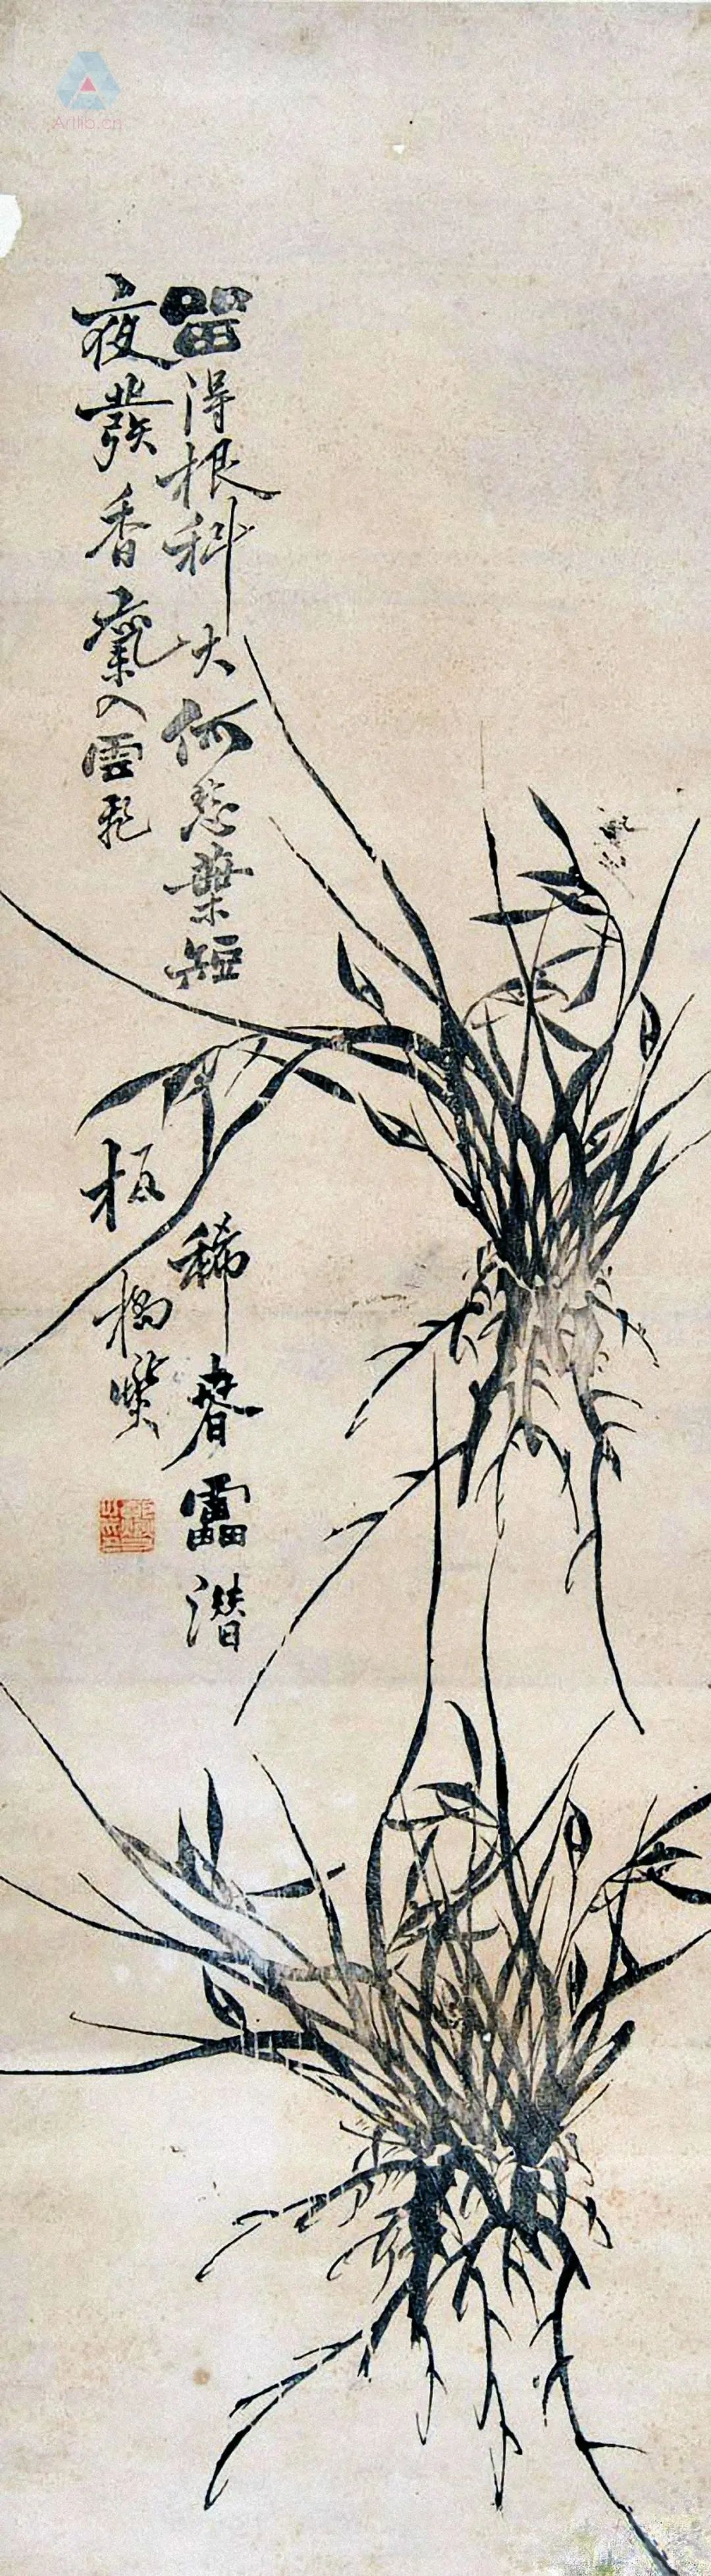 留得根科大何愁葉短
稀春雷潛
夜發香氣入雲
板橋燮
Artlib.cn